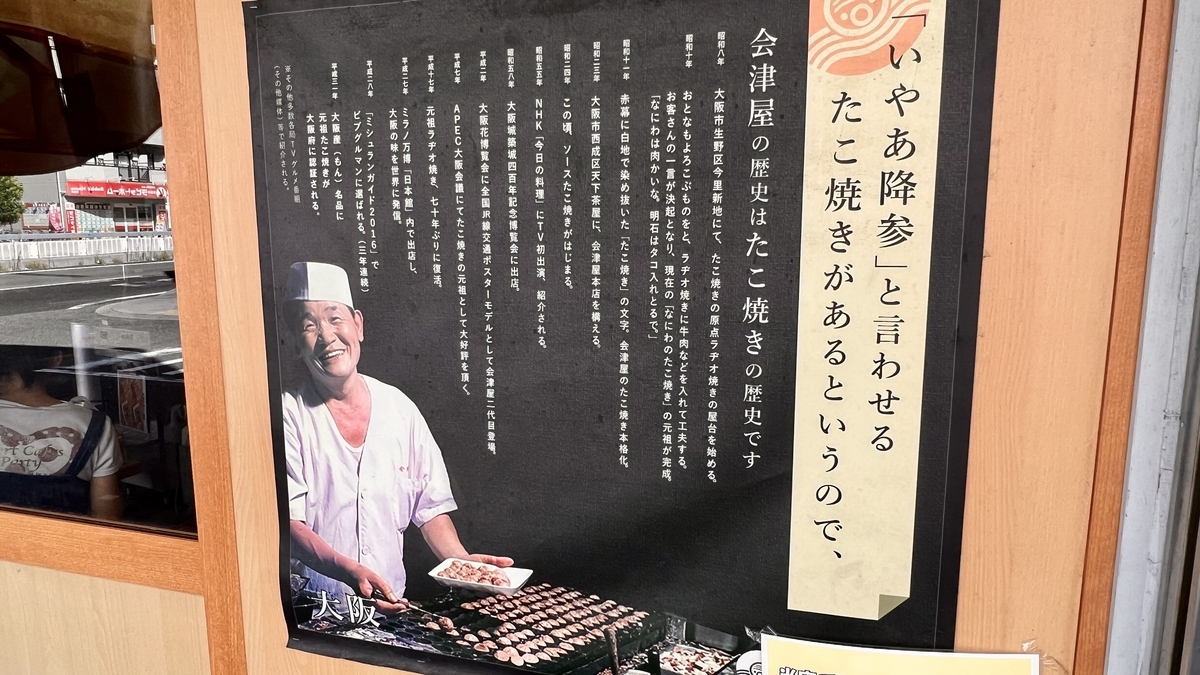 「いやあ降参」と言わせる
たこ焼きがあるというので、
会津屋の歴史はたこ焼きの歴史です
昭和八年 大阪市生野区今里新地にて、たこ焼きの原点ラヂオ焼きの屋台を始める。
昭和十年 おとなもよろこぶものをと、ラヂオ焼きに牛肉などを入れて工夫する。
お客さんの一言が決起となり、現在の「なにわのたこ焼き」の元祖が完成。
「なにわは肉かいな。明石はタコ入れとるで。」
昭和十一年 赤幕に白地で染め抜いた「たこ焼き」の文字。会津屋のたこ焼き本格化。
昭和二三年 大阪市西成区天下茶屋に、会津屋本店を構える。
昭和二四年 この頃、ソースたこ焼きがはじまる。
昭和五五年 NHK「今日の料理」にTV初出演、紹介される。
昭和五八年 大阪城築城四百年記念博覧会に出店。
平成二年 大阪花博覧会に全国JR線交通ポスターモデルとして会津屋二代目登場。
平成七年 APEC大阪会議にてたこ焼きの元祖として大好評を頂く。
平成十七年 元祖ラヂオ焼き、七十年ぶりに復活。
平成二七年 ミラノ万博「日本館」内で出店し、
大阪の味を世界に発信。
平成二八年 「ミシュランガイド2016」で
ビブグルマンに選ばれる。(三年連続)
平成三一年 大阪産(もん)名品に
元祖たこ焼きが
大阪府に認証される。
※その他多数各局TVグルメ番組
(その他媒体)等で紹介される。
大阪